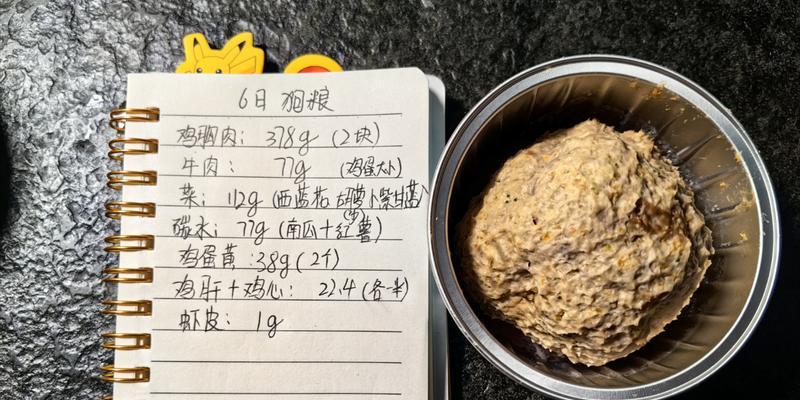 6日 狗粮
鸡胸肉: 378g (2块)
牛肉: 77g (鸡蛋大小)
菜: 112g (西蓝花 胡萝卜 紫甘蓝)
碳水: 77g (南瓜+红薯)
鸡蛋黄: 38g (2个)
鸡肝+鸡心: 22.4 (各一半)
虾皮: 1g